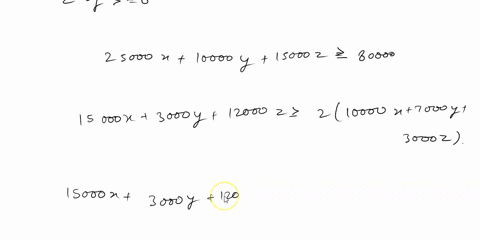 25000x + 10000y + 15000z ≥ 80000
15000x + 3000y + 12000z ≥ 2(10000x + 7000y +
3000z).
15000x + 3000y + 120